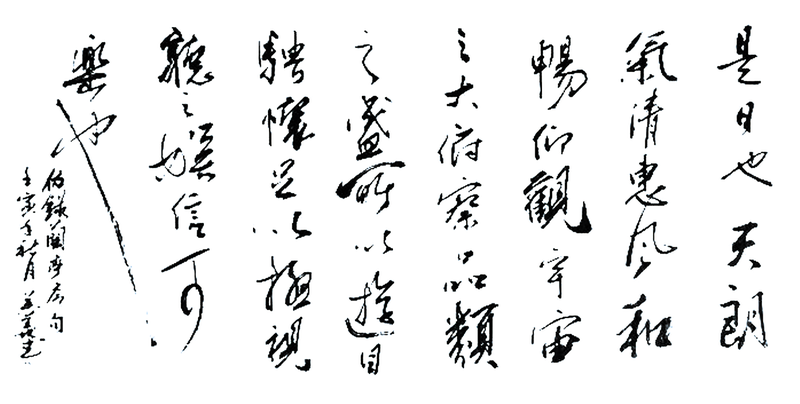 是日也天朗
氣清惠風和
暢仰觀宇宙
之大俯察品類
之盛所以遊目
騁懷足以極視
聽之娛信可
樂也
節錄蘭亭序句
壬寅年秋月